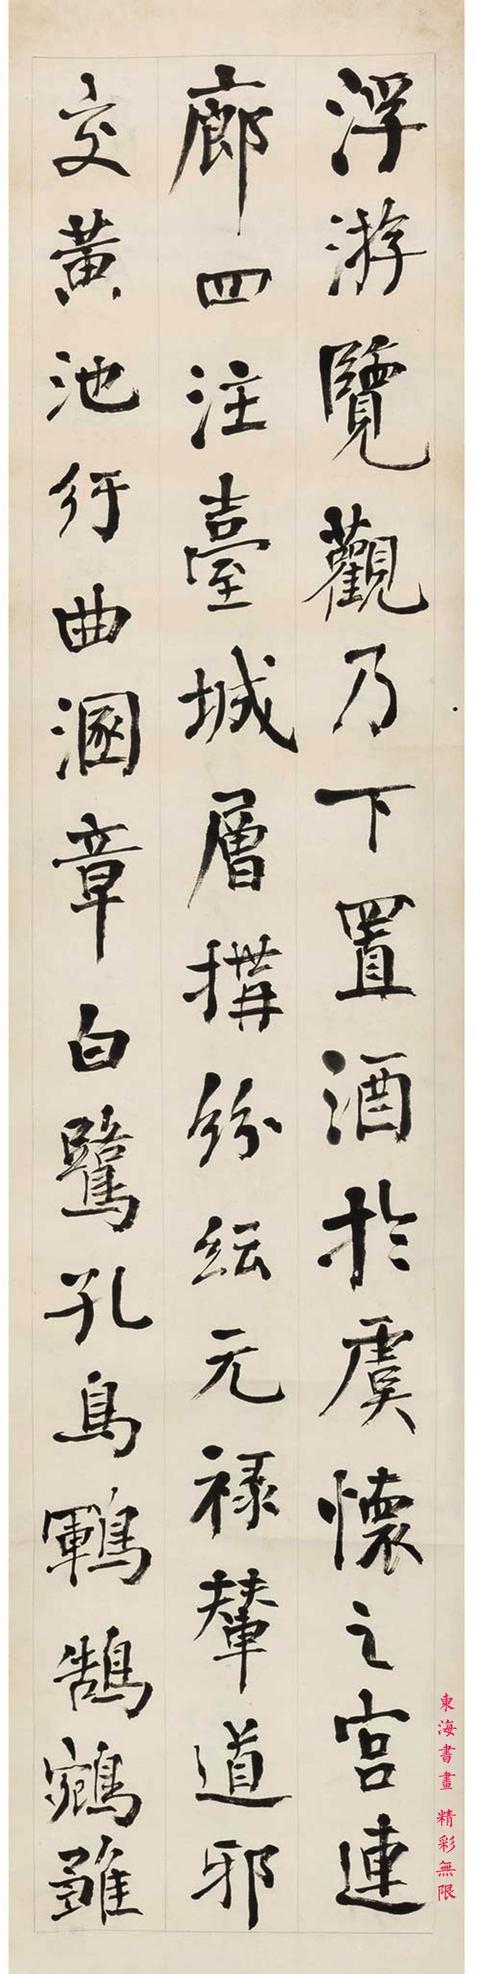 浮游覽觀乃下置酒於虞懷之宮連
廊四注臺城層搆紛紜元祿輦道邪
交黃池紆曲溷章白鷺孔鳥鶤鵠鵷雛
東海書畫 精彩無限